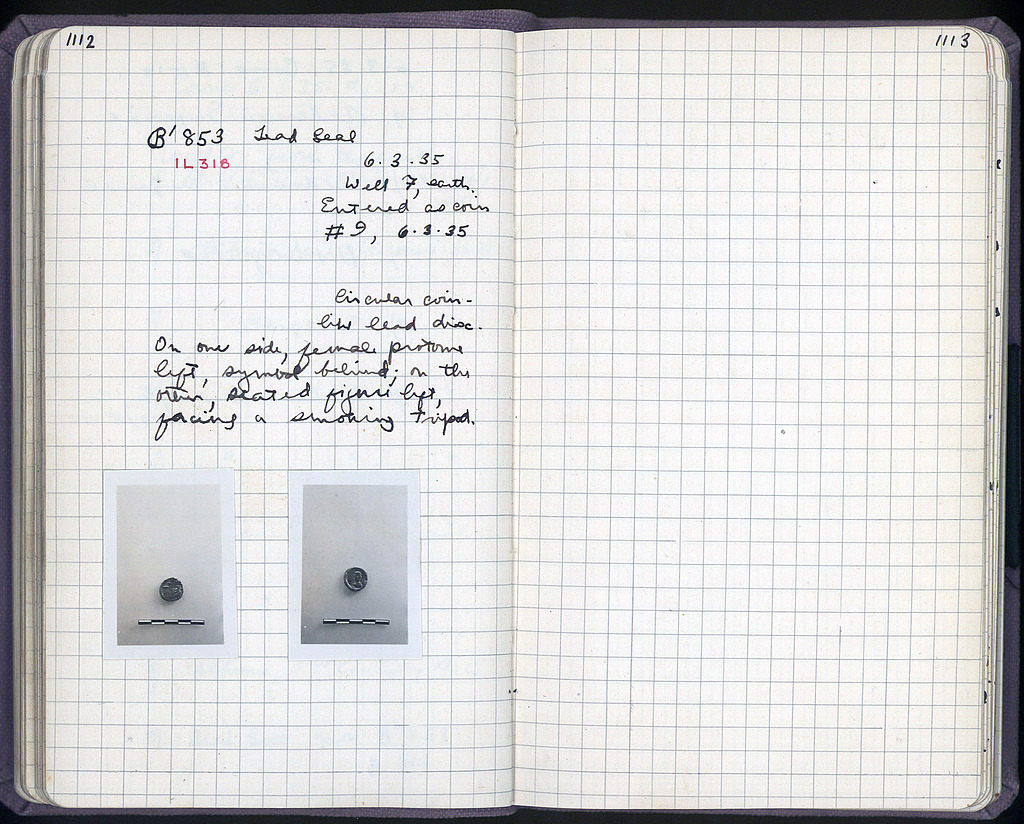 1112
1113
B' 853 Lead Seal
IL 318
6.3.35
Well 7, earth.
Entered as coin
#9, 6.3.35
Circular coin-
like lead disc.
On one side, female protome
left, symbol behind; on the
other, seated figure left,
facing a smoking tripod.